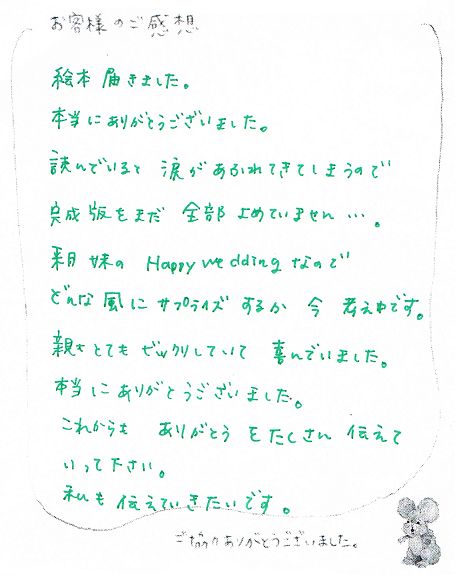 お客様のご感想
絵本 届きました。
本当にありがとうございました。
読んでいると 涙があふれてきてしまうので
完成版をまだ 全部 よめていません…。
来月 妹の Happy wedding なので
どんな風に サプライズ するか 今 考え中です。
親もとても ビックリしていて 喜んでいました。
本当にありがとうございました。
これからも ありがとう をたくさん 伝えて
いって下さい。
私も 伝えていきたいです。
ご協力ありがとうございました。